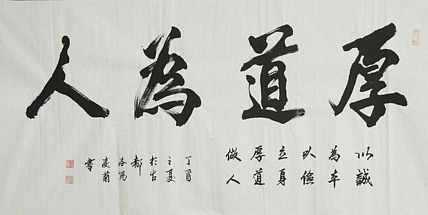 厚道為人
以誠
為本
以儉
立身
厚道
做人
丁酉
之夏
於古
都
洛陽
書